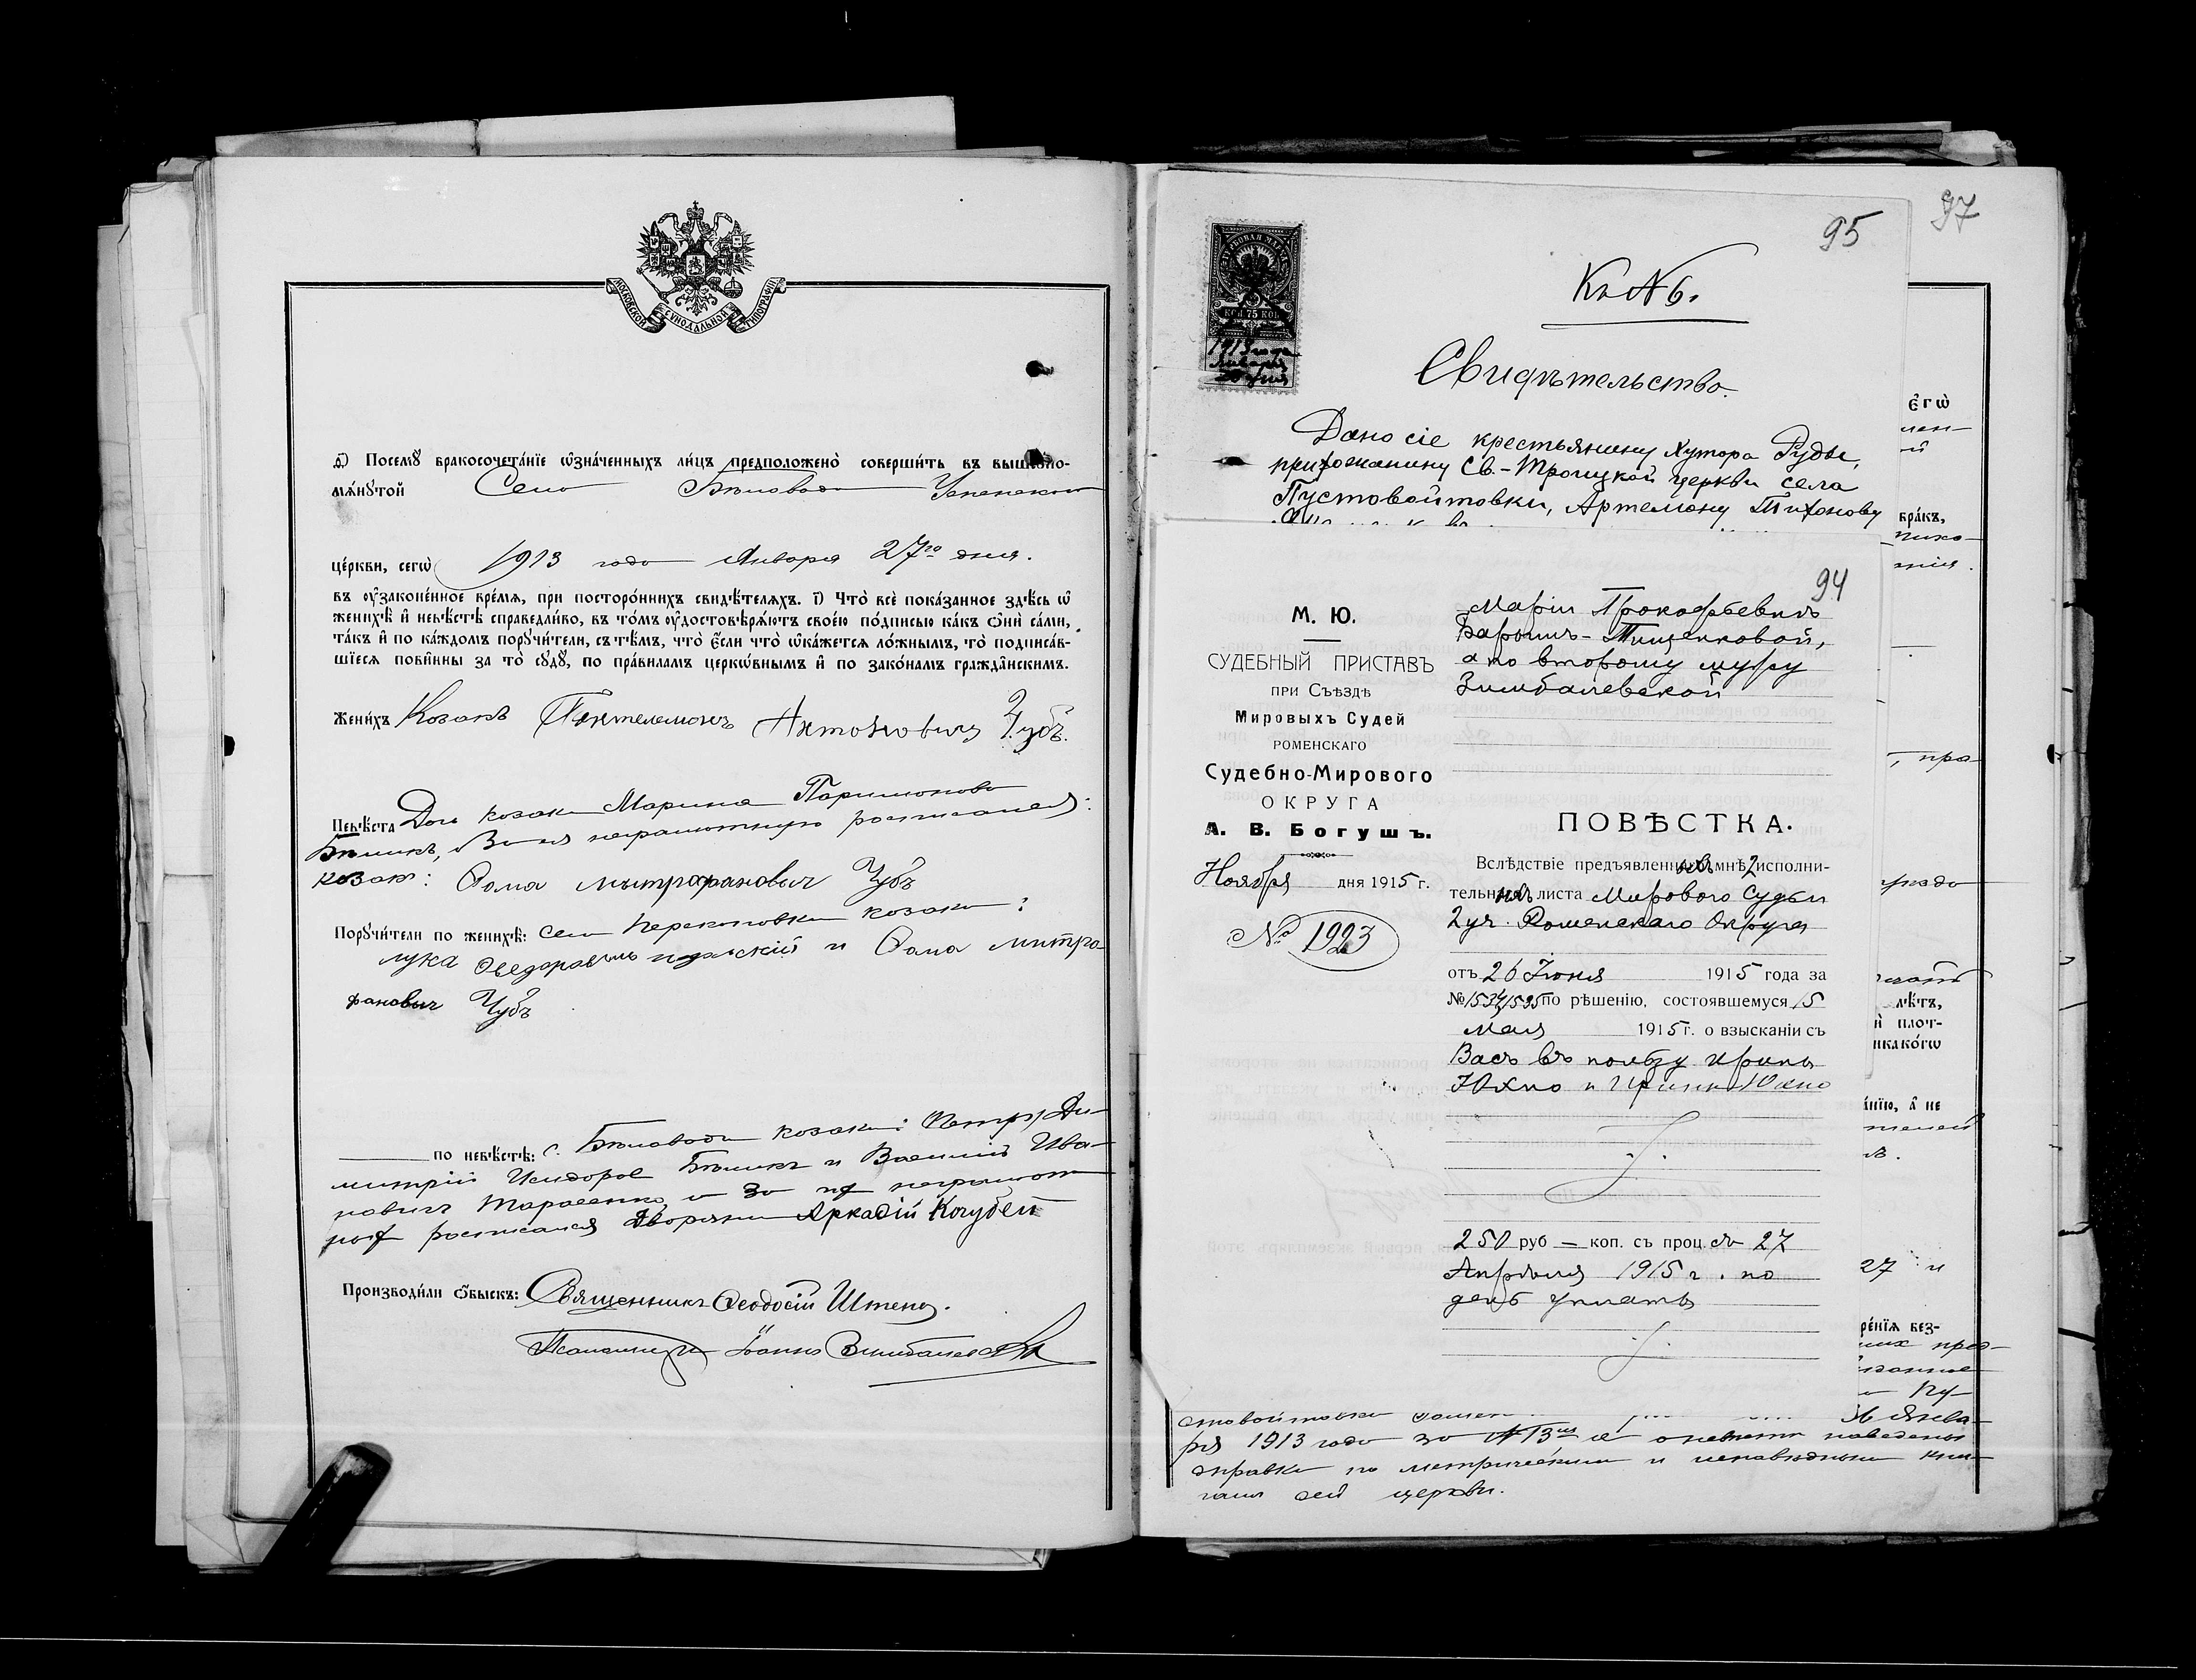 МОСКОВСКОЙ СУНОДАЛЬНОЙ ТИПОГРАФІИ
Посемꙋ бракосочета́нїе ѡ҆зна́ченныхъ ли́цъ предположено̀ соверши́ть въ вышепо-
мѧ́нꙋтой Села Бѣловодъ Успенской
це́ркви, сегѡ̀ 1913 года Января 27го дня.
въ ᲂу҆зако́ненное вре́мѧ, при посторо́ннихъ свидѣ́телѧхъ. і҃) Что̀ всѐ пока́занное здѣ́сь ѡ҆
женихѣ̀ и҆ невѣ́стѣ справедли́во, въ то́мъ ᲂу҆достовѣрѧ́ютъ свое́ю по́дписью ка́къ ѻ҆нѝ са́ми,
та́къ и҆ по ка́ждомъ порꙋчи́тели, съ тѣ́мъ, что̀ є҆́сли что̀ ѡ҆ка́жетсѧ ло́жнымъ, то̀ подписа́в-
шїесѧ пови́нны за то̀ сꙋдꙋ̀, по пра́виламъ церко́внымъ и҆ по зако́намъ гражда́нскимъ.
Жени́хъ Козакъ Пантелемонъ Антоновичъ Чубъ.
Невѣ́ста Дочь козака Марина Паримонова
Бѣликъ, За нея неграмотную росписался:
козакъ: Фома Митрофановичъ Чубъ
Порꙋчи́тели по женихѣ̀: села Перекоповки козаки:
Лука Федоровичъ и Фома Митро
фановичъ Чубъ
по невѣ́стѣ: с. Бѣловодъ козаки: Петръ Ди-
митрій Исидоров Бѣликъ и Василій Ива-
новичъ Тарасенко, а за их неграмот
ных росписался Дворянинъ Аркадій Кочубей
Производи́ли ѻ҆́быскъ: Священникъ Феодосій Штепа.
Псаломщикъ Іоаннъ Зимбалевскій
95
97
КОП. 75 КОП.
1913 года
Января
Къ № 6.
Свидѣтельство.
Дано сіе крестьянину Хутора Рудъ,
прихожанину Св.-Троицкой церкви села
Пустовойтовки, Артемону Тихонову
94
М. Ю.
СУДЕБНЫЙ ПРИСТАВЪ
ПРИ СЪѢЗДѢ
Мировыхъ Судей
РОМЕНСКАГО
Судебно-Мирового
ОКРУГА
А. В. Богушъ.
Ноября дня 1915 г.
№ 1923
Маріи Прокофьевнѣ
Барышъ-Тищенковой,
а по второму мужу
Зимбалевской
ПОВѢСТКА.
Вслѣдствіе предъявленныхъ мнѣ 2 исполни-
тельныхъ листа Мирового Судьи
2 уч. Роменскаго Округа
отъ 26 Іюня 1915 года за
№ 1534/1535 по рѣшенію, состоявшемуся 15
Мая 1915 г. о взысканіи съ
Васъ въ пользу Ирины
Юхно и Ирины Юхно
250 руб — коп. съ проц. съ 27
Апрѣля 1915 г. по
день уплаты
є҆гѡ̀
бра́къ,
пра
лѣ́тъ,
и҆ плот-
ника́кого
а́нїю, а҆ не
27 и
ре́нїѧ без-
Пу-
стовойтовки Янва-
ря 1913 года за № 13 и наведены
справки по метрическимъ и исповѣднымъ кни-
гамъ сей церкви.